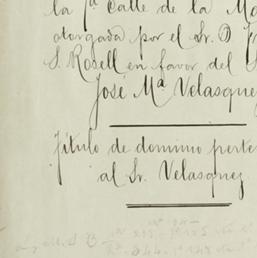 la 7ª Calle de la Ma
otorgada por el Sr. D
S. Rosell en favor del S
José Mª Velasquez
Título de dominio perte
al Sr. Velasquez.